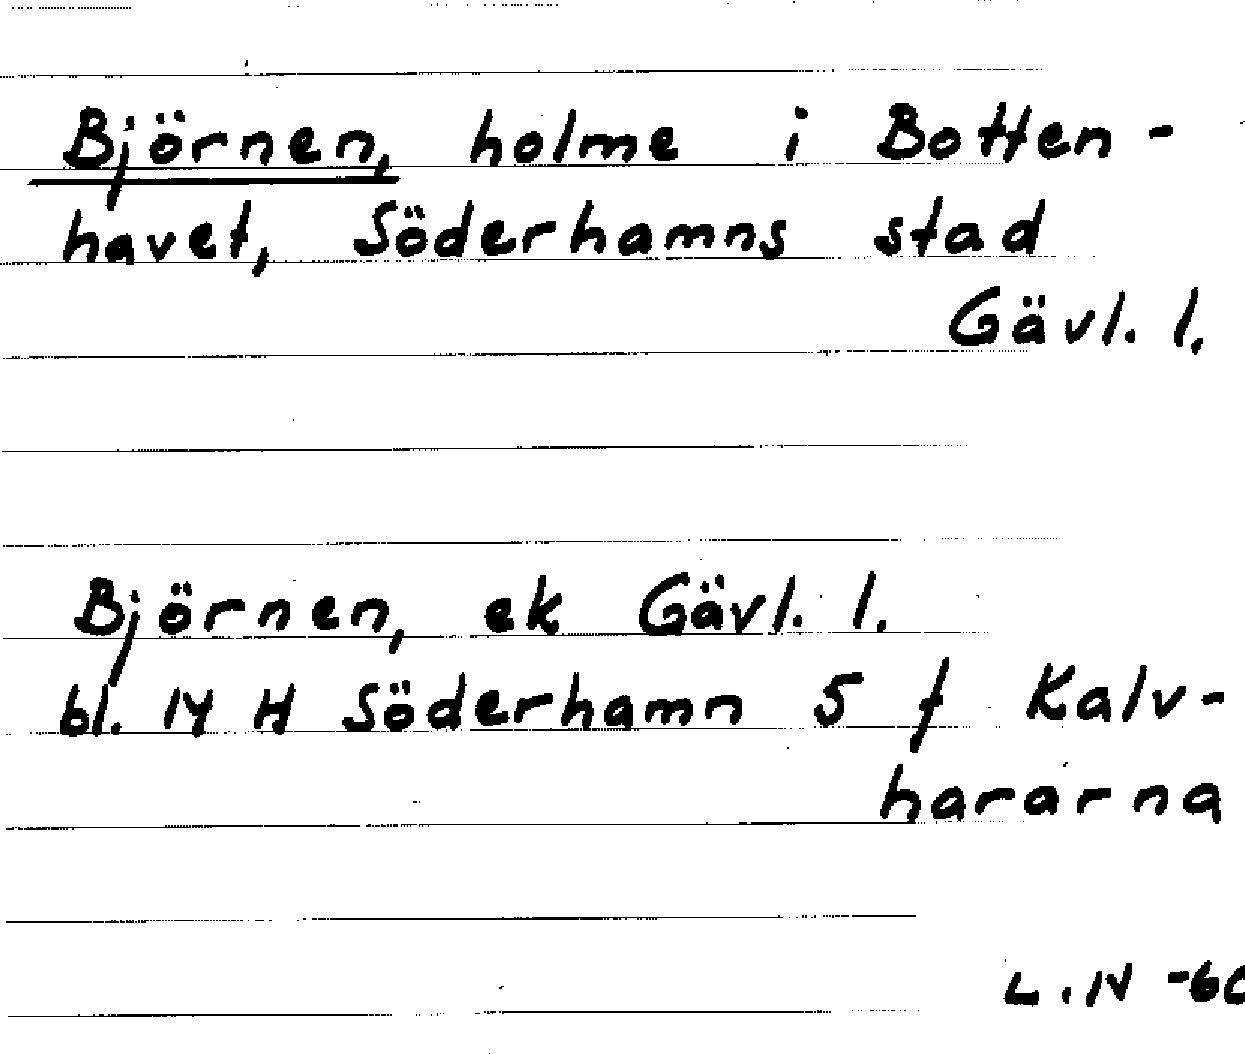 Björnen, holme i Botten-
havet, Söderhamns stad
Gävl. l.
Björnen, ek Gävl. l.
bl. 14 H Söderhamn 5 f Kalv-
hararna
L.N -60